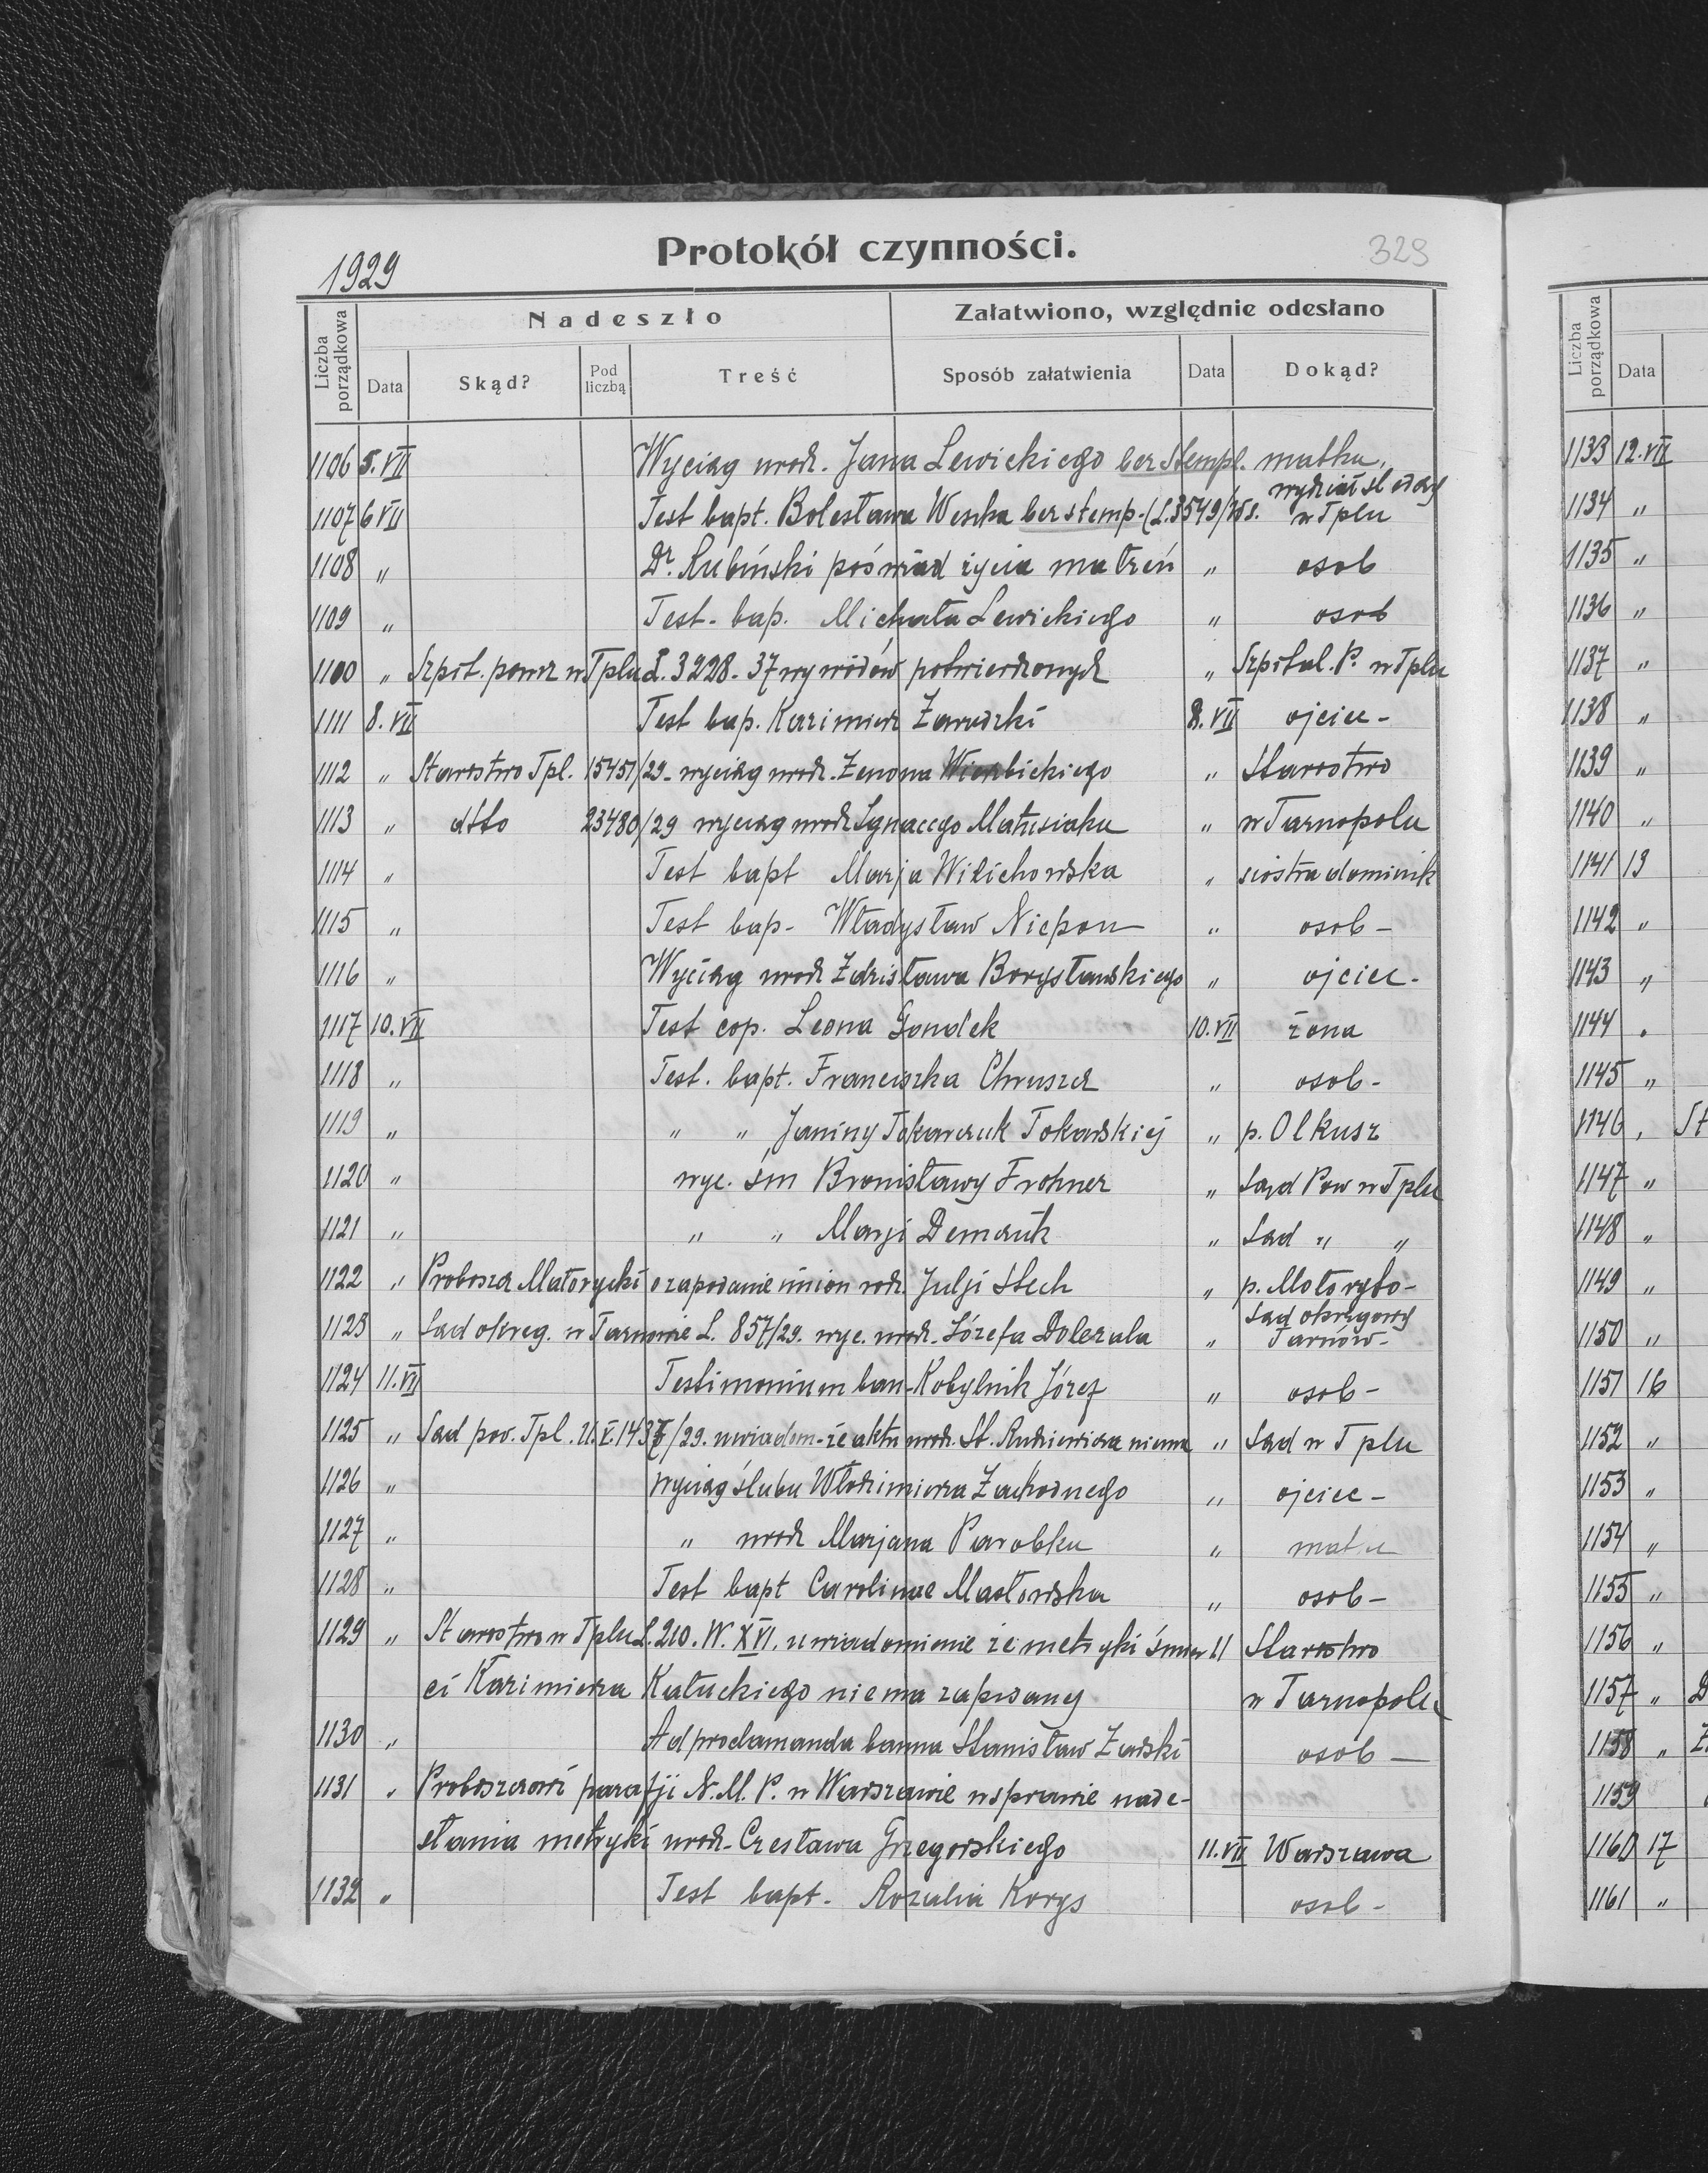 1929
Protokół czynności.
329
Liczba porządkowa
Nadeszło
Załatwiono, względnie odesłano
Data
Skąd?
Pod liczbą
Treść
Sposób załatwienia
Data
Dokąd?
1106 5.VII Wyciąg urodz. Jana Lewickiego bez stempl. matka
1107 6 VII Test bapt. Bolesława Weszka bez stemp. (L.3549/ wydział śl w Tplu
1108 " Dr. Rubiński poświad życia małżeń " osob
1109 " Test. bap. Michała Lewickiego " osob
1100 " Szpit. powsz w Tplu L. 3228. 37 wywodów potwierdzonych " Szpital. P. w Tplu
1111 8. VII Test bap. Kazimierz Zawadzki 8. VII ojciec -
1112 " Starostwo Tpl. 15451/29 - wyciąg urodz. Zenona Wierzbickiego " Starostwo
1113 " dtto 23480/29 wyciąg urodz Ignacego Matusiaka " w Tarnopolu
1114 " Test bapt Marja Wilichowska " siostra dominik
1115 " Test bap - Władysław Niepon " osob -
1116 " Wyciąg urodz Zdzisława Borysławskiego " ojciec -
1117 10. VII Test cop. Leona Gondek 10. VII żona
1118 " Test. bapt. Franciszka Chruszcz " osob -
1119 " " " Janiny Tokarczuk Tokarskiej " p. Olkusz
1120 " wyc. śm Bronisławy Frohner " Sąd Pow w Tplu
1121 " " " Marji Demczuk " Sąd " "
1122 " Proboszcz Matorycki o zapodanie imion rodz. Julji Stech " p. Motoryło -
1123 " Sąd okręg. w Tarnowie L. 857/29. wyc. urodz. Józefa Dolezala " Sąd okręgowy Tarnów -
1124 11. VII Testimonium ban - Kobylnik Józef " osob -
1125 " Sąd pow. Tpl. U. V. 1437/29. uwiadom - że aktu urodz. St. Rudziewicza niema " Sąd w Tplu
1126 " wyciąg ślubu Włodzimierza Zachodnego " ojciec -
1127 " " urodz Marjana Parobka " matka
1128 " Test bapt Carolinae Masłowska " osob -
1129 " Starostwo w Tplu L. 210. W. XVI. uwiadomienie że metryki śmier 11 Starostwo
ci Kazimierza Kałuckiego niema zapisanej w Tarnopolu
1130 " Ad proclamanda banna Stanisław Żurski osob -
1131 " Proboszczowi parafji N. M. P. w Warszawie w sprawie nade-
słania metryki urodz - Czesława Grzegorskiego 11. VII Warszawa
1132 " Test bapt - Rozalia Korys osob -
Liczba porządkowa
Data
1133 12. VII
1134 "
1135 "
1136 "
1137 "
1138 "
1139 "
1140 "
1141 13
1142 "
1143 "
1144 "
1145 "
1146 " St
1147 "
1148 "
1149 "
1150 "
1151 16
1152 "
1153 "
1154 "
1155 "
1156 "
1157 "
1158 "
1159
1160 17
1161 "